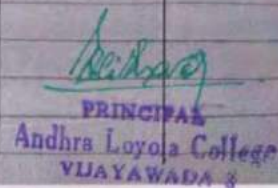 PRINCIPAL
Andhra Loyola College
VIJAYAWADA 8